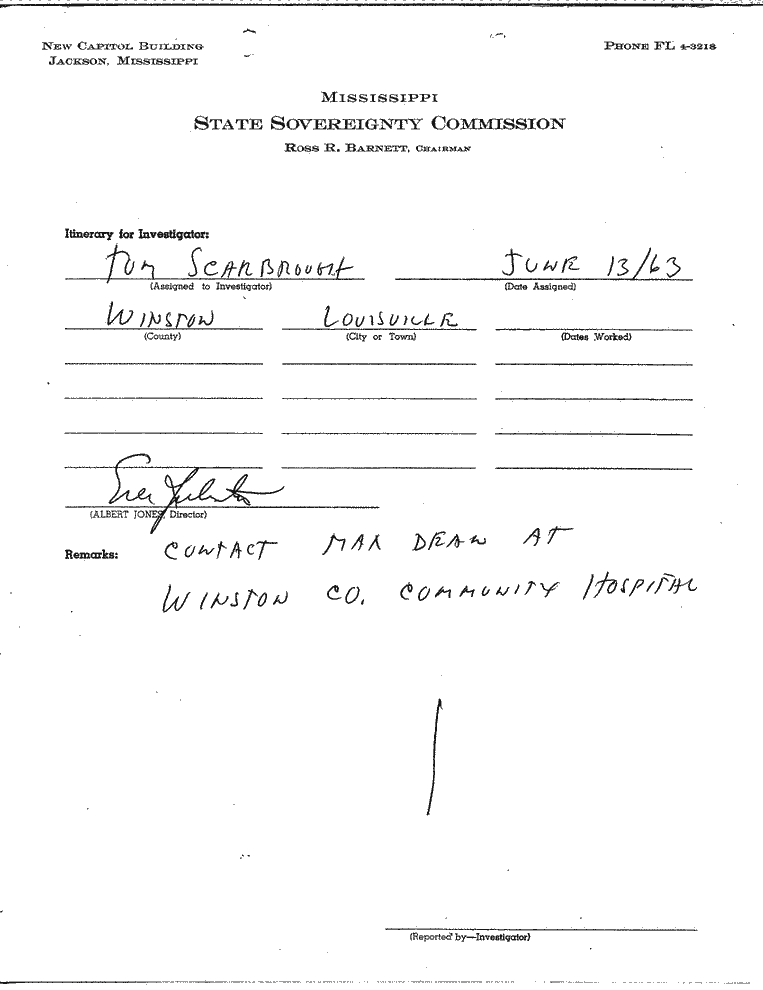 NEW CAPITOL BUILDING
JACKSON, MISSISSIPPI
PHONE FL 4-3218
MISSISSIPPI
STATE SOVEREIGNTY COMMISSION
ROSS R. BARNETT, CHAIRMAN
Itinerary for Investigator:
TOM SCARBROUGH JUNE 13/63
(Assigned to Investigator) (Date Assigned)
WINSTON LOUISVILLE
(County) (City or Town) (Dates Worked)
(ALBERT JONES, Director)
Remarks: CONTACT MAX DEAN AT
WINSTON CO. COMMUNITY HOSPITAL
(Reported by—Investigator)